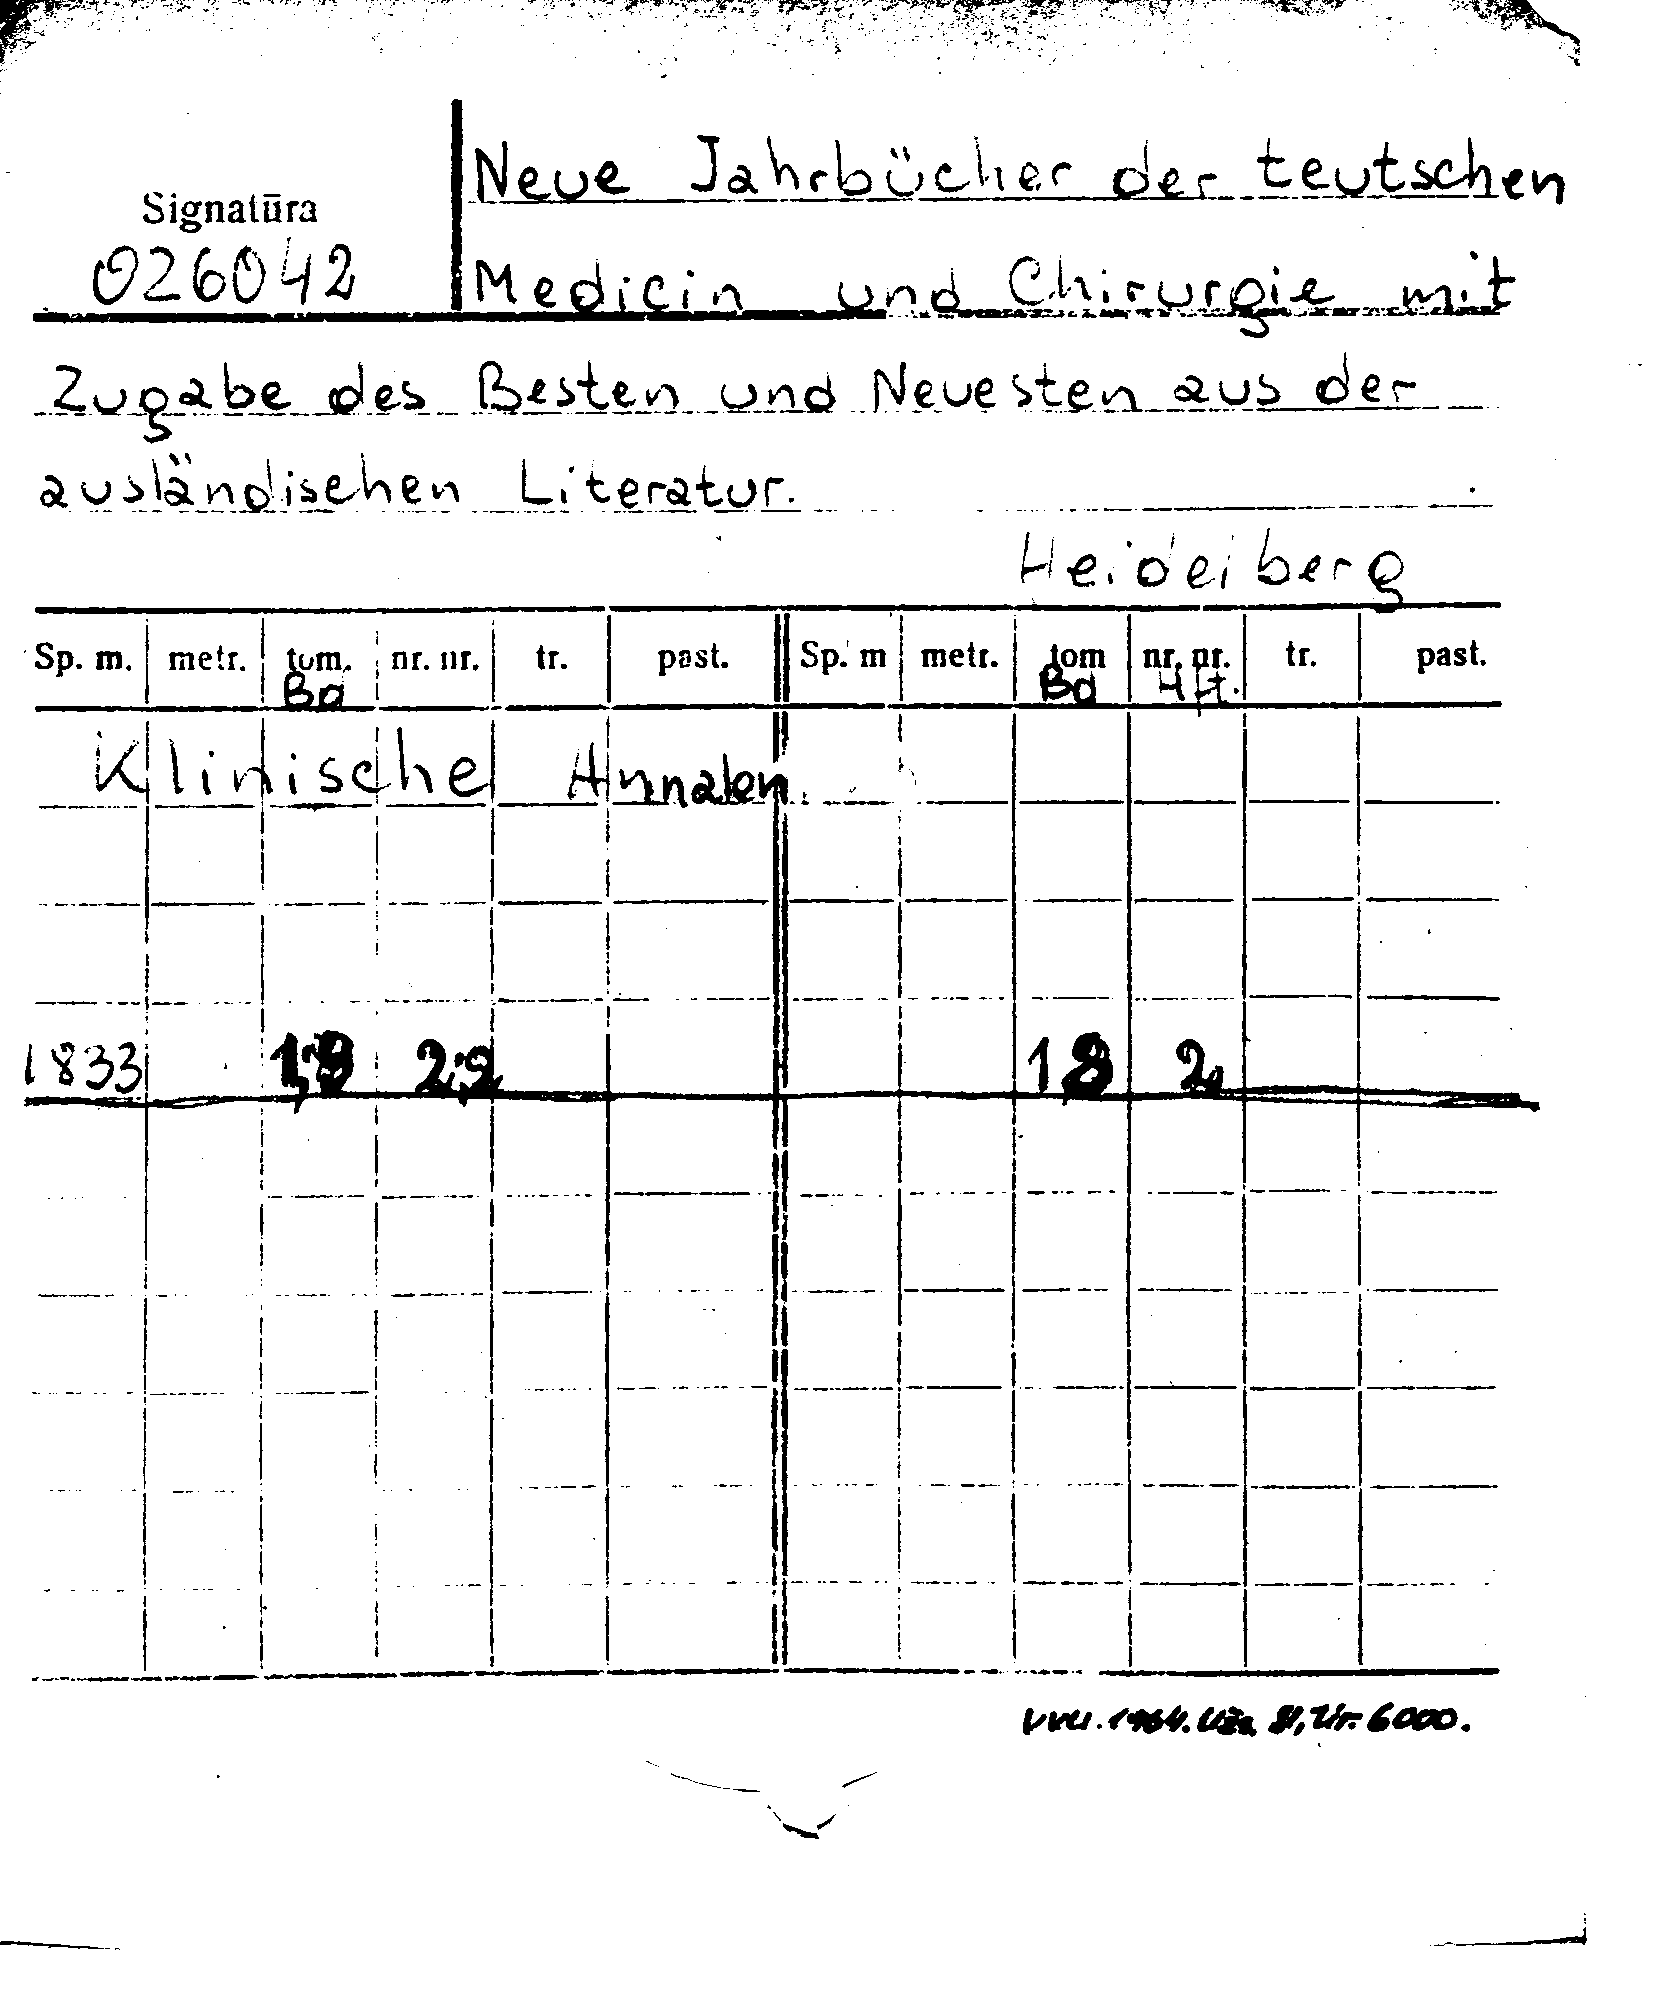 Neue Jahrbücher der teutschen
Signatūra
026042
Medicin und Chirurgie mit
Zugabe des Besten und Neuesten aus der
ausländischen Literatur.
Heidelberg
Sp. m. metr. tom. nr. nr. tr. past. Sp. m metr. tom nr. nr. tr. past.
Bd Bd Hft.
Klinische Annalen.
1833 2,2 2.
VVU. 1964. Užs. 6000.